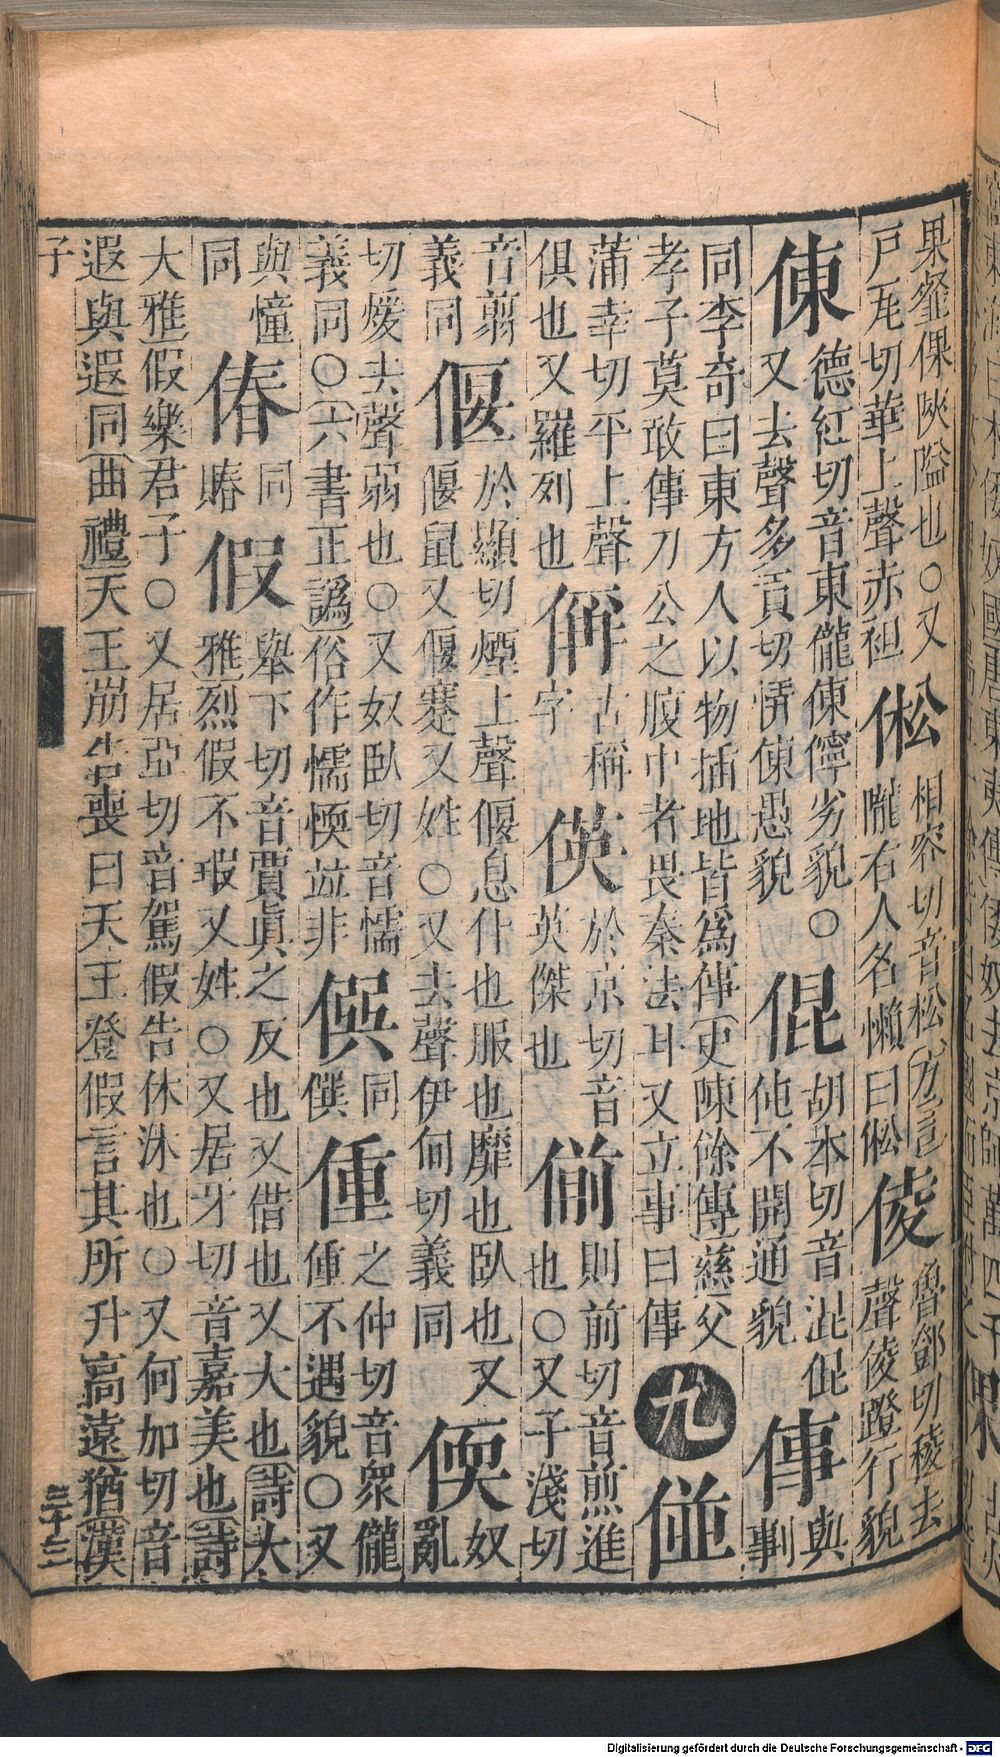 果壑倮陿隘也○又
戶瓦切華上聲赤袒
倯
相容切音松方言
隴右人名懶曰倯
倰
魯鄧切稜去
聲倰蹬行貌
倲
德紅切音東儱倲儜劣貌○
又去聲多貢切倲愚貌
倱
胡本切音混倱
伅不開通貌
倳
與
剚
同李奇曰東方人以物插地皆爲倳史陳餘傳慈父
孝子莫敢倳刀公之腹中者畏秦法耳又立事曰倳
九
蒲幸切平上聲
俱也又羅列也
偁
古稱
字
偀
於京切音
英傑也
偂
則前切音煎進
也○又子淺切
音翦
義同
偃
於顯切煙上聲偃息什也服也靡也臥也又
偃鼠又偃蹇又姓○又去聲伊甸切義同
偄
奴
亂
切煖去聲弱也○又奴臥切音懦
義同○六書正譌俗作懦愞竝非
同
僕
偅
之仲切音衆儱
偅不遇貌○又
與憧
同
偆
同
賰
假
舉下切音賈眞之反也又借也又大也詩大
雅烈假不瑕又姓○又居牙切音嘉美也詩
大雅假樂君子○又居亞切音駕假告休沐也○又何加切音
遐與遐同曲禮天王崩告喪曰天王登假言其所升高遠猶漢
子
Digitalisierung gefördert durch die Deutsche Forschungsgemeinschaft - DFG